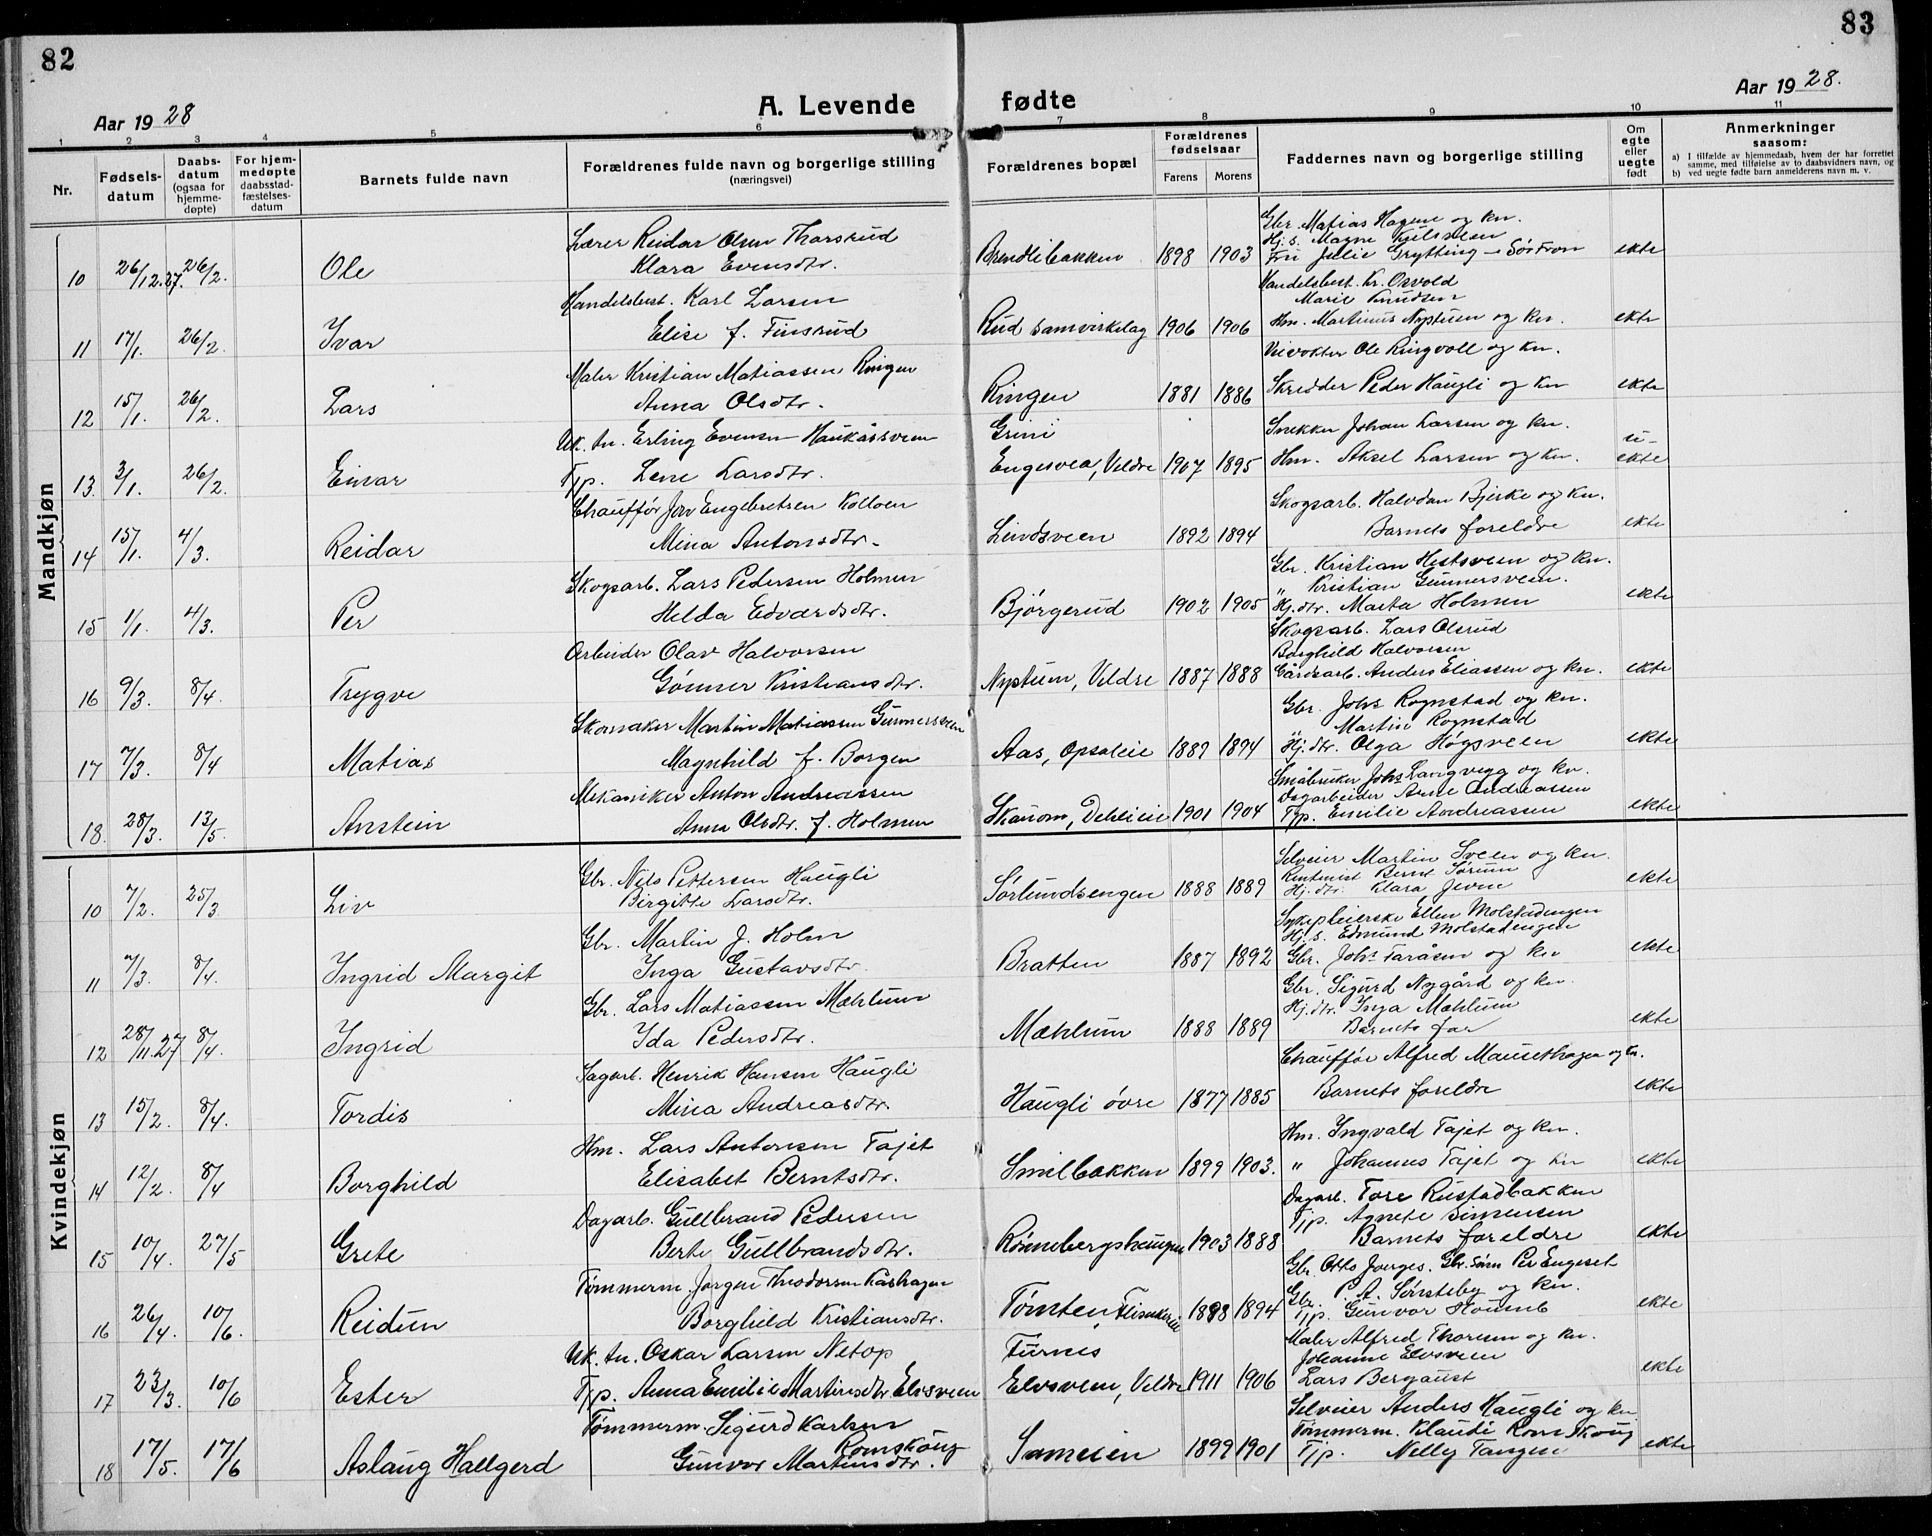 82
83
Aar 1928
A. Levende fødte
Aar 1928.
1 2 3 4 5 6 7 8 9 10 11
Nr.
Fødsels-datum
Daabs-datum (ogsaa for hjemme-døpte)
For hjem-medøpte daabsstad-fæstelses-datum
Barnets fulde navn
Forældrenes fulde navn og borgerlige stilling (næringsvei)
Forældrenes bopæl
Forældrenes fødselsaar
Farens Morens
Faddernes navn og borgerlige stilling
Om egte eller uegte født
Anmerkninger saasom:
a) I tilfælde av hjemmedaab, hvem der har forrettet samme, med tilføielse av to daabsvidners navn, og
b) ved uegte fødte barn anmelderens navn m. v.
Mandkjøn
10 26/12.27. 26/2. Ole
Lærer Reidar Olsen Thorsrud
Klara Evensdtr.
Brendlibakken 1898 1903
Gbr. Matias Hagene og kn.
Hj.s. Magne Kjelsveen
Fru Julie Grytting - Sør Fron
ekte
11 17/1. 26/2. Ivar
Handelsbest. Karl Larsen
Elise f. Finsrud
Rud samvirkelag 1906 1906
Handelsbest. Kr. Osvold
Marie Knudsen
Hm. Martinus Nyptuen og kn.
ekte
12 15/1. 26/2. Lars
Maler Kristian Matiassen Ringen
Anna Olsdtr.
Ringen 1881 1886
Veivokter Ole Ringvoll og kn.
Skredder Peder Haugli og kn
ekte
13. 3/1. 26/2. Einar
Uk. tn. Erling Evensen Haukåssveen
Tjp. Lene Larsdtr.
Grini
Engesvea, Veldre 1907 1895
Snekker Johan Larsen og kn.
Hm. Aksel Larsen og kn.
u-
ekte
14 15/1. 4/3. Reidar
Chauffør Jon Engebretsen Kolloen
Mina Antonsdtr.
Lindsveen 1892 1894
Skogsarb. Halvdan Bjerke og kn.
Barnets foreldre
ekte
15 1/1. 4/3. Per
Skogsarb. Lars Pedersen Holmen
Helda Edvardsdtr.
Bjørgerud 1902 1905
Gbr. Kristian Hestsveen og kn.
" Kristian Gunnersveen.
Hj.dtr. Marta Holmen
ekte
16 9/3. 8/4. Trygve
Arbeider Olav Halvorsen
Gønner Kristiansdtr.
Nyptuen, Veldre 1887 1888
Skogsarb. Lars Olsrud
Borghild Halvorsen
Gårdsarb. Anders Eliassen og kn.
ekte
17 7/3. 8/4 Matias
Skomaker Martin Matiassen Gunnersveen
Magnhild f. Borgen
Aas, Opsaleie 1889 1894
Gbr. Johs Rognstad og kn.
" Martin Rognstad
Hj.dtr. Olga Høgsveen
ekte
18. 28/3. 13/5. Anstein
Mekaniker Anton Andreassen
Anna Olsdtr. f. Holmen
Skaurom, Dehlieie 1901 1904
Småbruker Johs Langvegg og kn.
Dagarbeider Arne Andreassen
Tjp. Emilie Andreassen
ekte
Kvindekjøn
10 7/2. 25/3 Liv
Gbr. Nils Pettersen Haugli
Birgitte Larsdtr.
Sørlundsengen 1888 1889
Selveier Martin Sveen og kn.
Rentenist Bernt Sørum
Hj.dtr. Klara Jevne
ekte
11 7/3. 8/4. Ingrid Margit
Gbr. Martin J. Holm
Inga Gustavsdtr.
Bratten 1887 1892
Sykepleierske Ellen Molstadengen
Hj.s. Edmund Molstadengen
Gbr. Johs Faråsen og kn
ekte
12 28/11.27 8/4. Ingrid
Gbr. Lars Matiassen Mæhlum
Ida Pedersdtr.
Mæhlum 1888 1889
Gbr. Sigurd Nygård og kn.
Hj.dtr. Inga Mæhlum
Barnets far
ekte
13 15/2. 8/4. Tordis
Sagarb. Henrik Hansen Haugli
Mina Andreasdtr.
Haugli øvre 1877 1885
Chauffør Alfred Mausethagen og kn.
Barnets foreldre
ekte
14 12/2. 8/4 Borghild
Hm. Lars Antonsen Tajet
Elisabet Berntsdtr.
Smilbakken 1899 1903.
Hm. Ingvald Tajet og kn.
" Johannes Tajet og kn
ekte
15 10/4. 27/5 Grete
Dagarb. Gullbrand Pedersen
Berte Gullbrandsdtr.
Rønnebergshaugen 1903 1888
Dagarb. Tore Rustadbakken
Tjp. Agnete Simensen
Barnets foreldre
ekte
16 26/4. 10/6. Reidun
Tømmerm. Jørgen Thodorsen Kåshagen
Borghild Kristiansdtr.
Tømten, 1888 1894
Gbr. Otto Joerges. Gbr. sønn Per Engeset
Gbr. P. A. Sørsteby og kn.
Tjp. Gunvor Houmb
ekte
17 23/3. 10/6 Ester
Uk. tn. Oskar Larsen Netop
Tjp. Anna Emilie Martinsdtr Elvsveen
Furnes
Elvsveen, Veldre 1911 1906
Maler Alfred Thoresen og kn.
Johanne Elvsveen
Lars Bergaust
ekte
18 17/5. 17/6 Aslaug Hallgerd
Tømmerm. Sigurd Karlsen Romskoug
Gunvor Martinsdtr.
Sameien 1899 1901
Selveier Anders Haugli og kn
Tømmerm. Klaudi Romskoug
Tjp. Nelly Tangen
ekte